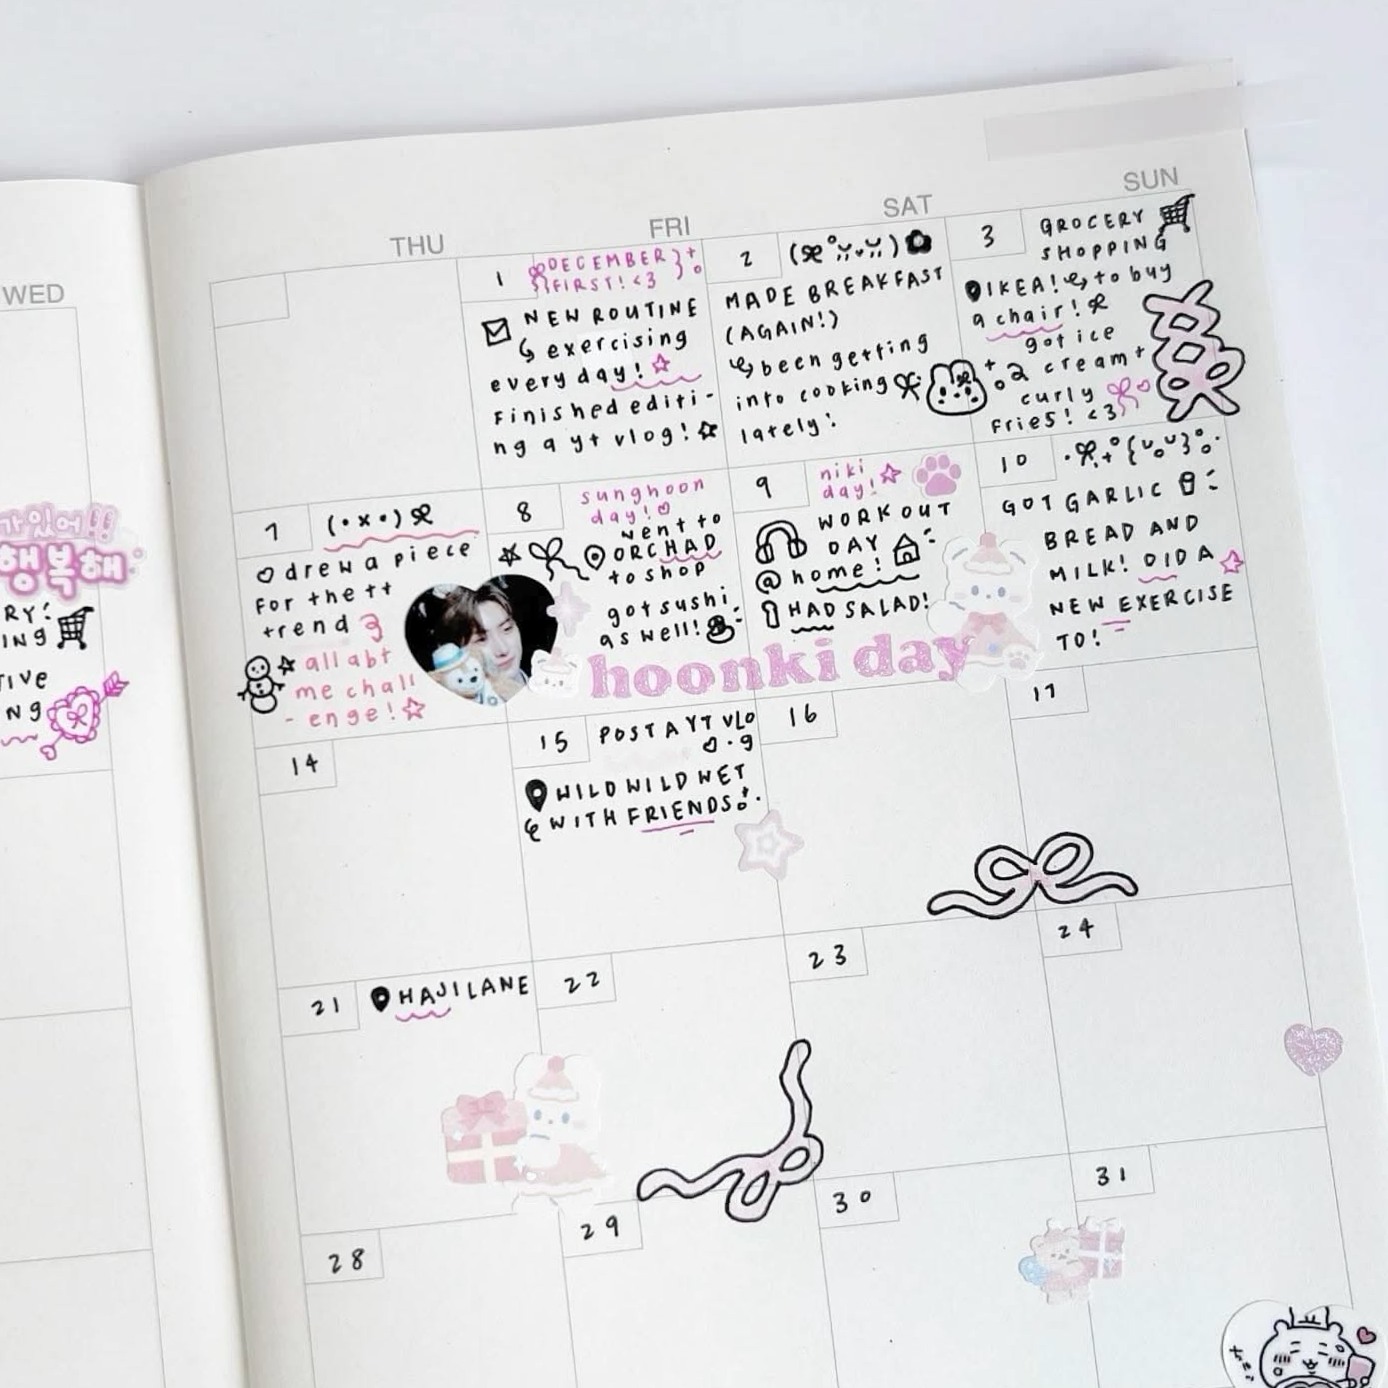 WED
THU
FRI
SAT
SUN
가있어!!
행복해
RY:
ING
IVE
NG
1
DECEMBER
FIRST! <3
NEW ROUTINE
exercising
every day!
Finished editi-
ng a yt vlog!
2
MADE BREAKFAST
(AGAIN!)
been getting
into cooking
lately!
3
GROCERY
SHOPPING
IKEA! to buy
a chair!
got ice
cream +
curly
fries! <3
7
(•x•)
drew a piece
for the tt
trend
all abt
me chall
- enge!
8
sunghoon
day!
went to
ORCHAD
to shop
got sushi
as well!
9
niki
day!
WORKOUT
DAY
@ home!
HAD SALAD!
hoonki day
10
GOT GARLIC
BREAD AND
MILK! DID A
NEW EXERCISE
TO!
14
15
POST A YT VLO
g
WILD WILD WET
WITH FRIENDS
16
17
21
HAJI LANE
22
23
24
28
29
30
31